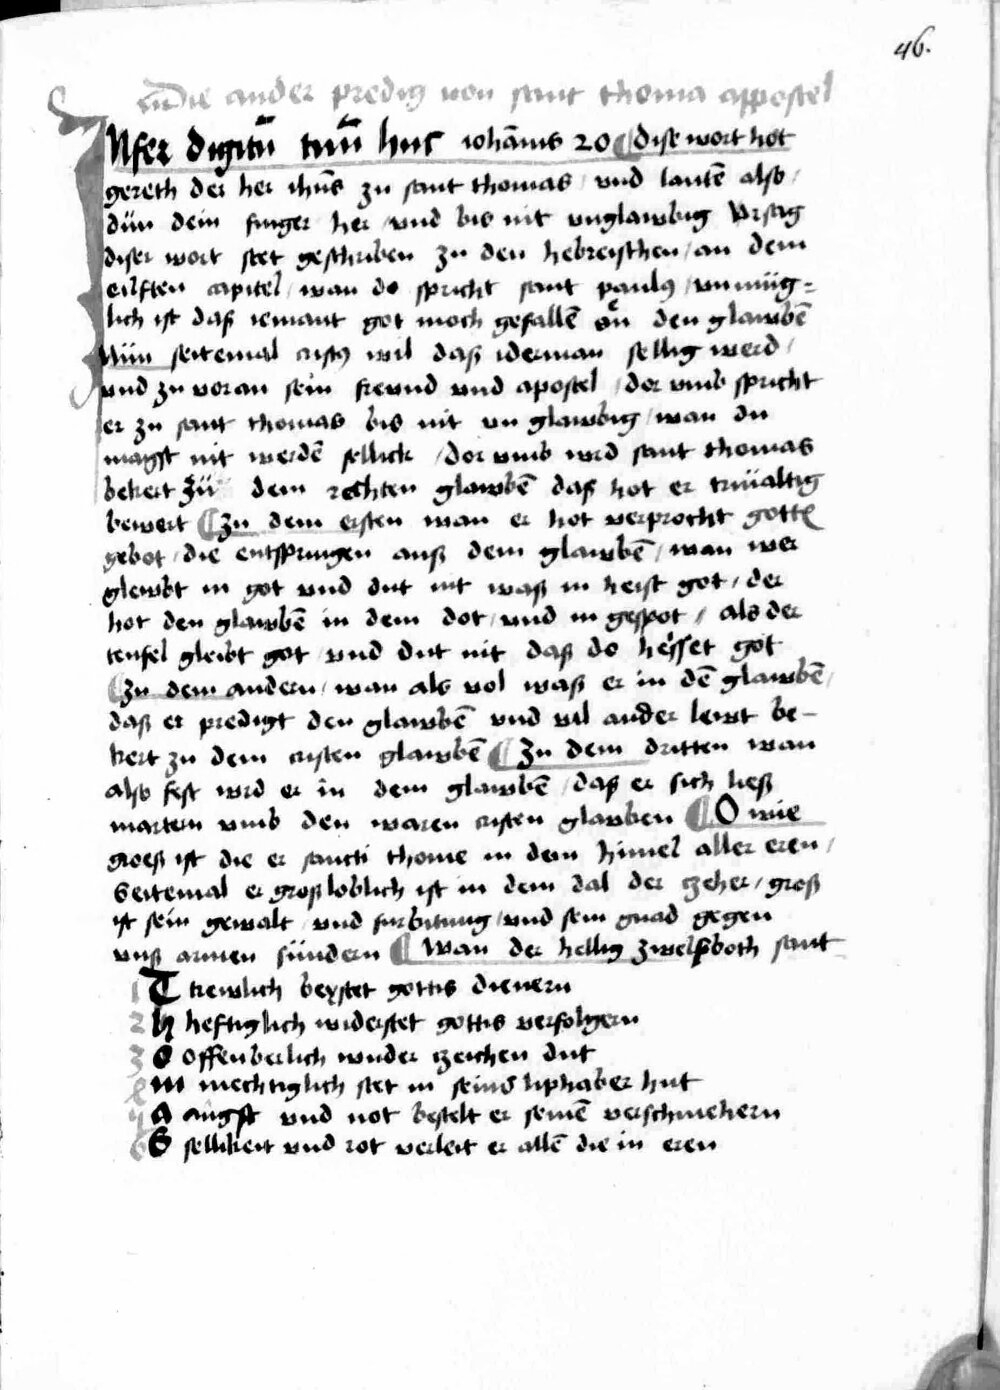 46.
Die ander predig von sant thoma appostel
INfer digitū tuū huc iohānis 20 dise wort hot
gereth der her ihūs zu sant thomas / vnd lautē also /
dün dein finger her / vnd bis nit vnglawbig Vrsag
diser wort stet geschriben zu den hebreischen / an dem
eilften capitel / wan do spricht sant paulꝰ / vnmüg=
lich ist daß iemant got moch gefallē an den glawbē
Nün seitemal cristꝰ wil daß iderman sellig werd /
vnd zu voran sein frewnd vnd apostel / dor vmb spricht
er zu sant thomas bis nit vn glawbig / wan du
magst nit werdē sellick / dor vmb wrd sant thomas
bekert zü dem rechten glawbē daß hot er triualtig
bewert ¶ Zu dem ersten wan er hot verprocht gottꝭ
gebot / die entspringen auß dem glawbē / wan wer
glewbt in got vnd dut nit waß in heist got / der
hot den glawbē in dem dot / vnd in gespot / als der
teufel gleibt got / vnd dut nit daß do heisset got
¶ Zu dem andern / wan als vol waß er in dē glawbē /
daß er predigt den glawbē vnd vil ander lewt be-
kert zu dem cristen glawbē ¶ Zu dem dritten wan
also fest wrd er in dem glawbē / daß er sich ließ
martern vmb den waren cristen glawben ¶ O wie
groeß ist die er sancti thome in dem himel aller eren /
Seitemal er großloblich ist in dem dal der czeher / groß
ist sein gewalt / vnd furbitung / vnd sein gnad gegen
vnß armen sündern ¶ Wan der hellig zwelfboth sant
1 T trewlich beystet gottis dienern
2 H heftiglich widerstet gottis verfolgern
3 O offenberlich wnder czeichen dut
4 M mechtiglich stet in seins liphaber hut
5 A angst vnd not bestelt er seinē verschmehern
6 S sellikeit vnd rot verleit er allē die in eren